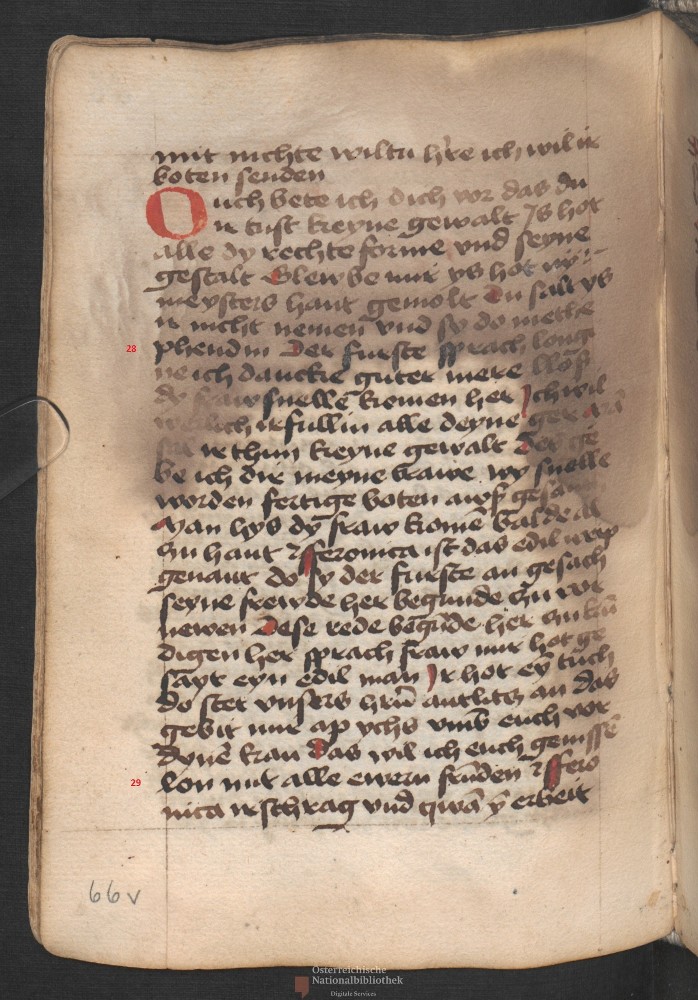 mit nichte wiltu h're ich wil ir
boten senden
Ouch bete ich dich vor das du
ir tust keyne gewalt Is hot
alle dy rechte forme vnd seyne
gestalt Glewbe mir ys hot
meysters hant gemolt Du salt ys
ir nicht nemen vnd so do methe
28 phendin Der furste sprach
ne ich dancke guter mere
dy fraw snelle komen her Ich wil
ich irfullin alle deyne
ir thun keyne gewalt Des ge
be ich dir meyne trawe wy snelle
worden fertige boten aws
Man hys dy fraw komē balde al
czu hant fferonica ist das edil weip
genant do sy der furste an gesach
seyne frewde her begunde czu vor
newen Dese rede begūde her czu kū
digen her sprach fraw mir hot ge
sayt eyn edil man Ir hot eȳ tuch
do stet vnsers hrn̄ antlitz an das
gebit mir ap ychs vmb euch vor
dynē kan Das wil ich euch genissē
29 lon mit alle ewern frūden ffero
nica irschrag vnd qwā ȳ erbeit
66v
Österreichische
Nationalbibliothek
Digitale Services